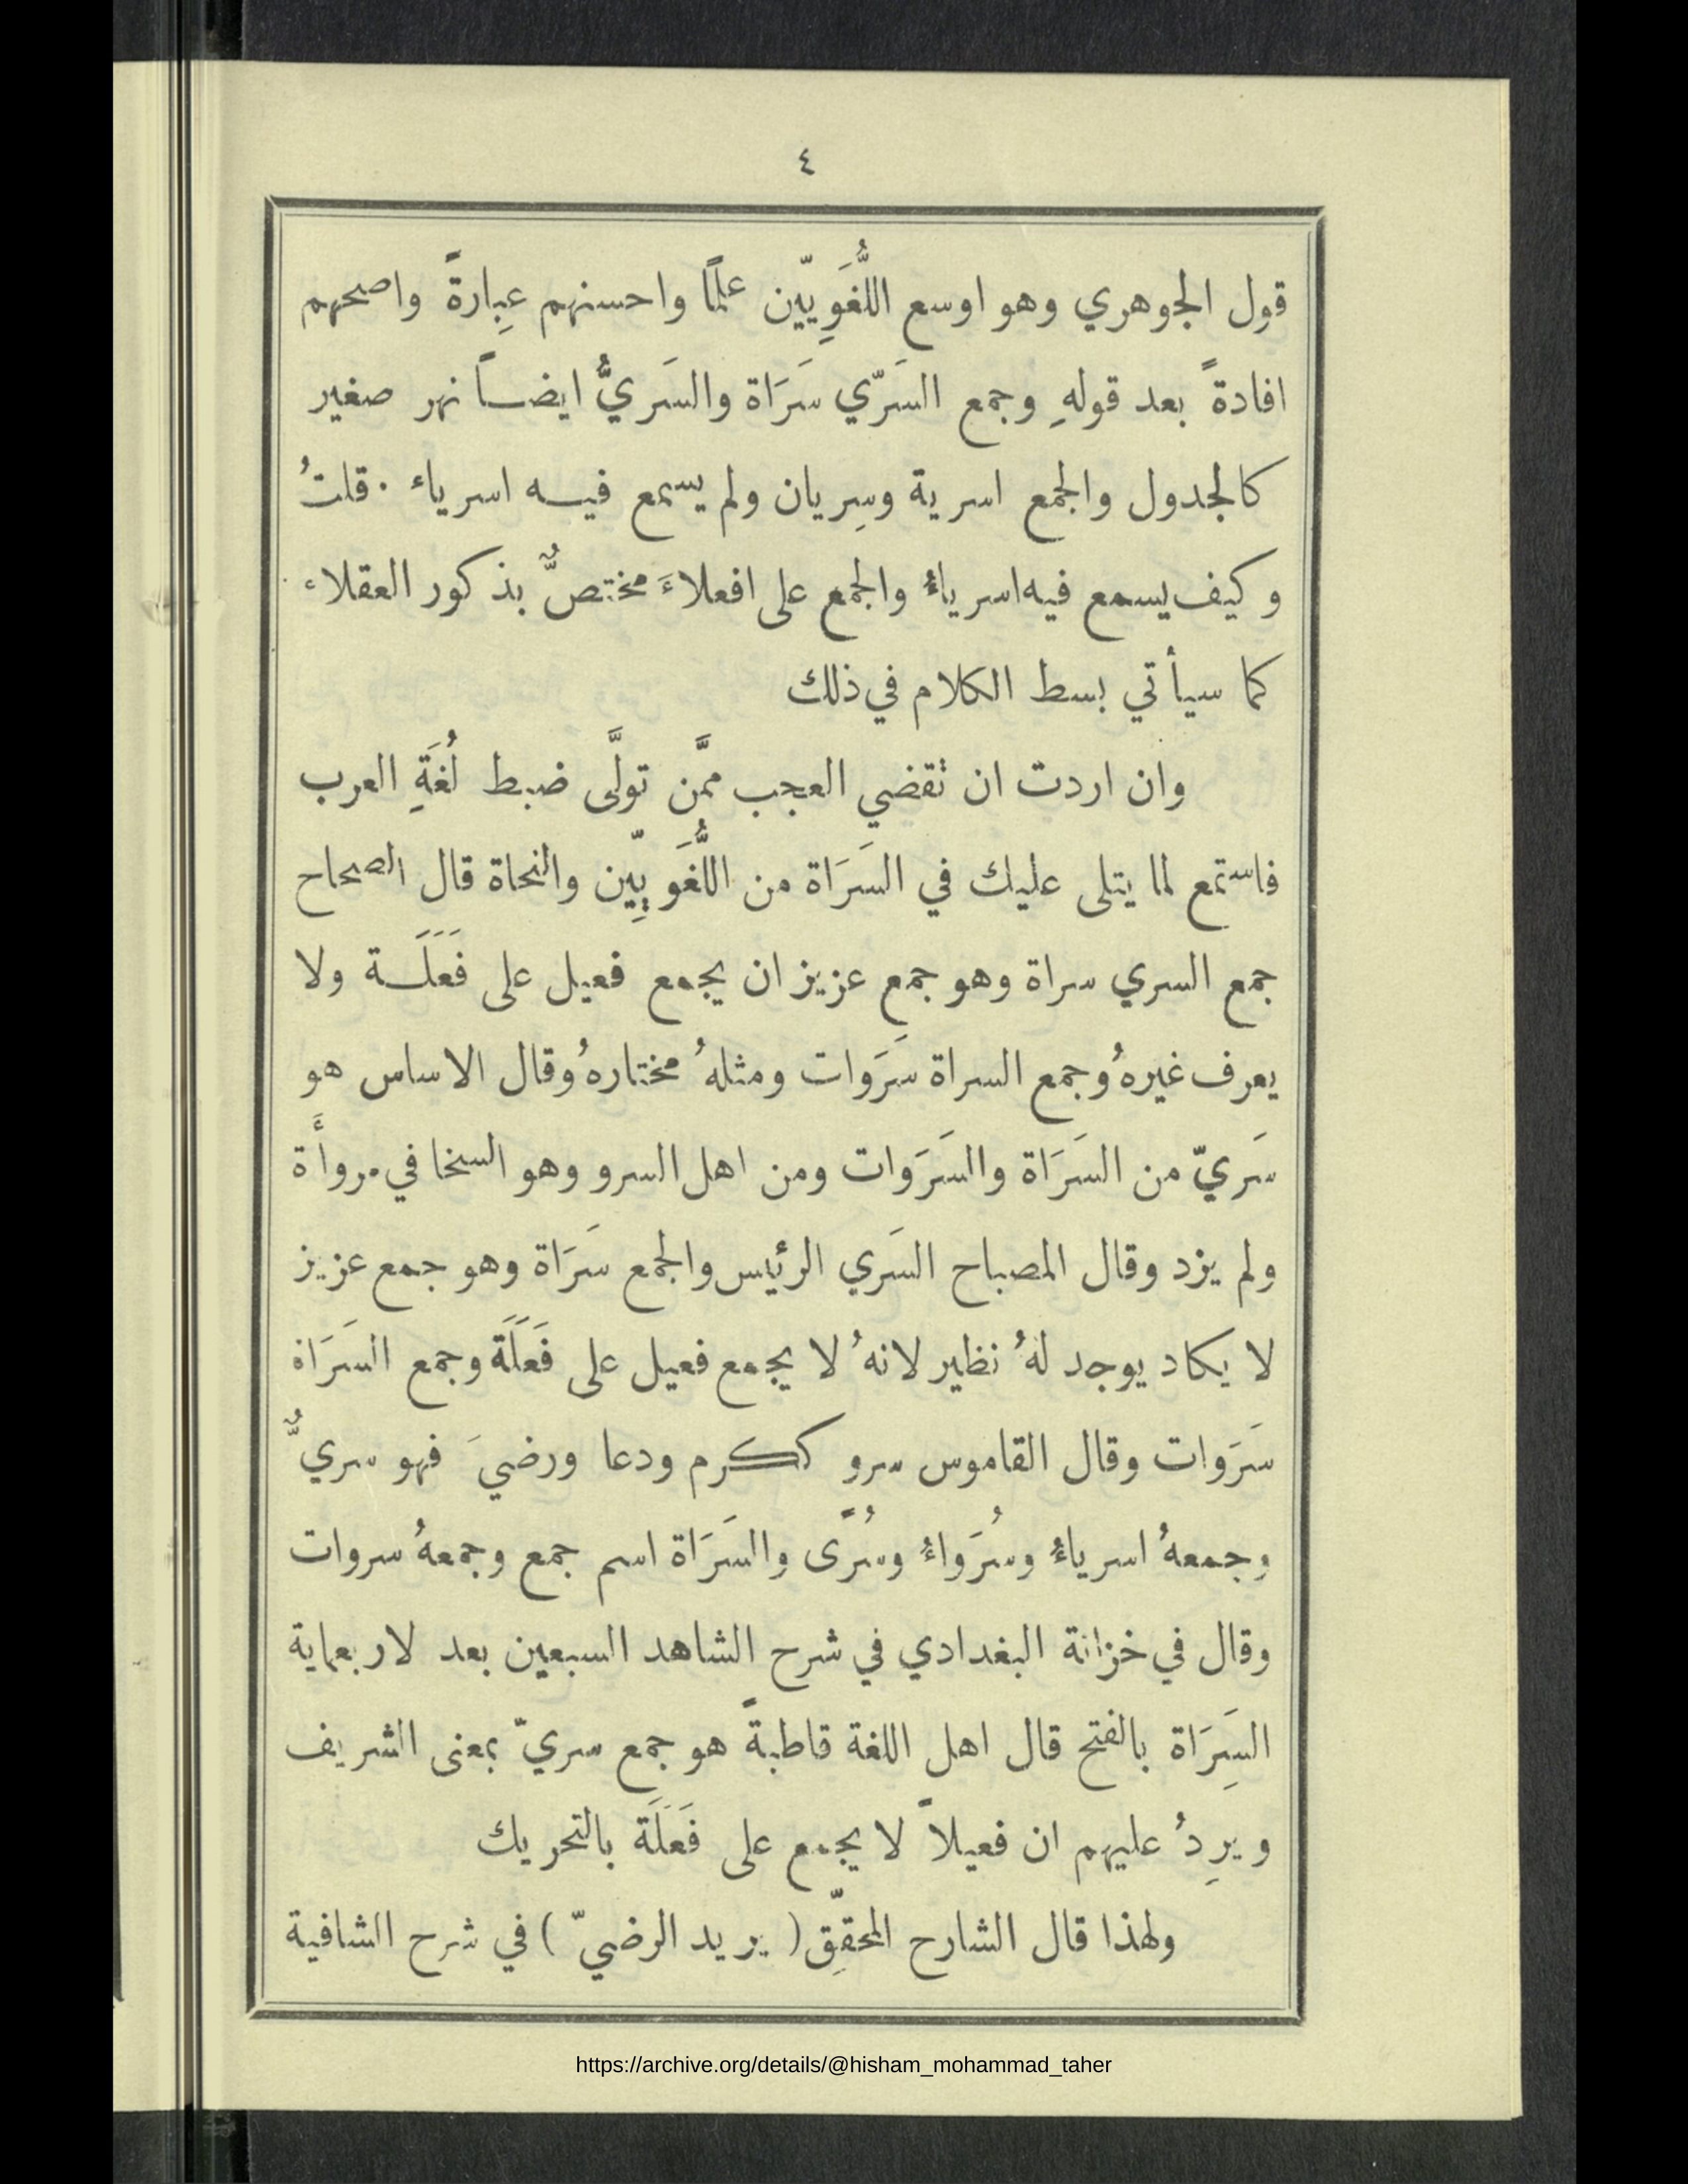 ٤
قول الجوهري وهو اوسع اللُّغَوِيّين علمًا واحسنهم عِبارةً واصحهم
افادةً بعد قولهِ وجمع السَرّي سَرَاة والسَريُّ ايضاً نهر صغير
كالجدول والجمع اسرية وسِريان ولم يسمع فيه اسرياء . قلتُ
وكيف يسمع فيه اسرياءُ والجمع على افعلاءَ مختصٌّ بذكور العقلاء
كما سيأتي بسط الكلام في ذلك
وان اردت ان تقضي العجب ممَّن تولَّى ضبط لُغَةِ العرب
فاستمع لما يتلى عليك في السَرَاة من اللُّغَوِيّين والنحاة قال الصحاح
جمع السري سراة وهو جمع عزيز ان يجمع فعيل على فَعَلَة ولا
يعرف غيرهُ وجمع السراة سَرَوات ومثلهُ مختارهُ وقال الاساس هو
سَريّ من السَرَاة والسَرَوات ومن اهل السرو وهو السخا في مروأَة
ولم يزد وقال المصباح السَري الرئيس والجمع سَرَاة وهو جمع عزيز
لا يكاد يوجد لهُ نظير لانهُ لا يجمع فعيل على فَعَلَة وجمع السَرَاة
سَرَوات وقال القاموس سرو ككرم ودعا ورضيَ فهو سريٌّ
وجمعهُ اسرياءُ وسُرَواءُ وسُرًى والسَرَاة اسم جمع وجمعهُ سروات
وقال في خزانة البغدادي في شرح الشاهد السبعين بعد لاربعماية
السَِرَاة بالفتح قال اهل اللغة قاطبةً هو جمع سريّ بمعنى الشريف
ويرِدُ عليهم ان فعيلاً لا يجمع على فَعَلَة بالتحريك
ولهذا قال الشارح المحقّق ( يريد الرضيّ ) في شرح الشافية
https://archive.org/details/@hisham_mohammad_taher